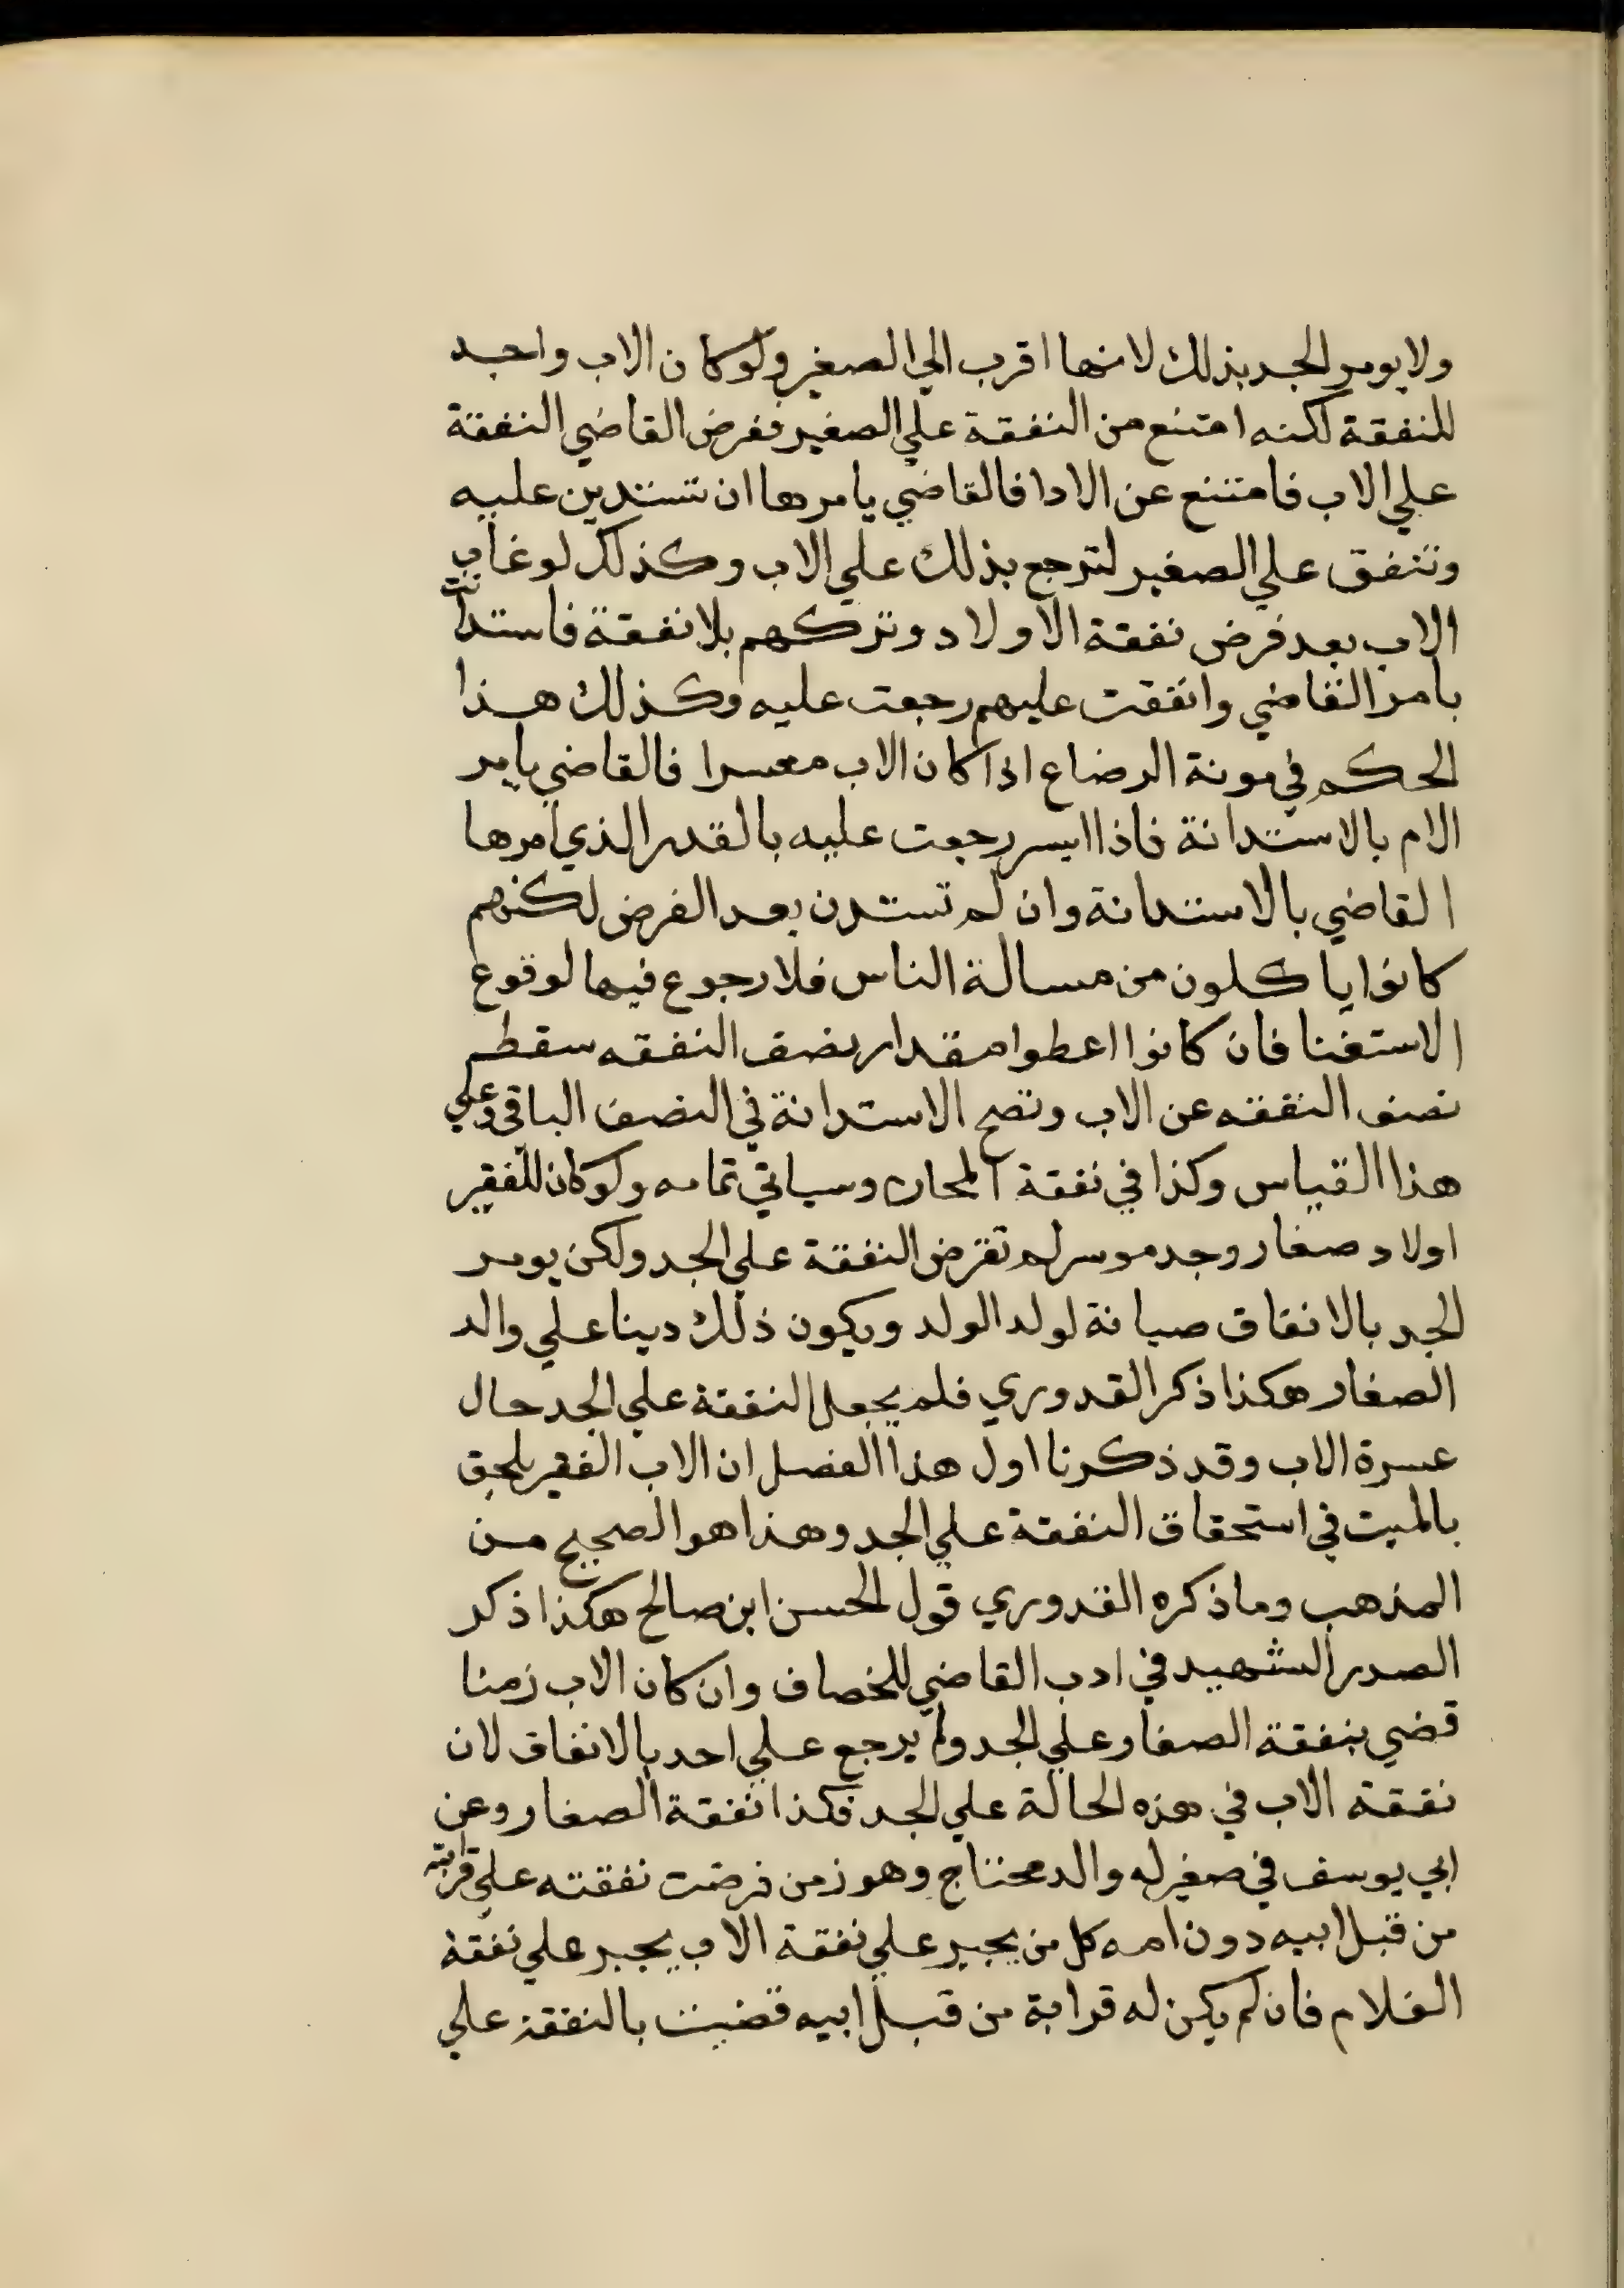 ولا يومر الجد بذلك لانها اقرب الي الصغير ولو كان الاب واجد
للنفقة لكنه امتنع من النفقة علي الصغير ففرض القاضي النفقة
علي الاب فامتنع عن الادا فالقاضي يامرها ان تستدين عليه
وتنفق علي الصغير لترجع بذلك علي الاب وكذلك لو غاب
الاب بعد فرض نفقة الاولاد وتركهم بلا نفقة فاستدانت
بامر القاضي وانفقت عليهم رجعت عليه وكذلك هذا
الحكم في مونة الرضاع اذا كان الاب معسرا فالقاضي يامر
الام بالاستدانة فاذا ايسر رجعت عليه بالقدر الذي امرها
القاضي بالاستدانة وان لم تستدن بعد الفرض لكنهم
كانوا ياكلون من مسالة الناس فلا رجوع فيها لوقوع
الاستغنا فان كانوا اعطوا مقدار نصف النفقه سقط
نصف النفقه عن الاب وتصح الاستدانة في النصف الباقي وعلي
هذا القياس وكذا في نفقة المحارم وسياتي تمامه ولو كان للفقير
اولاد صغار وجد موسر لم تفرض النفقة علي الجد ولكن يومر
الجد بالانفاق صيانة لولد الولد ويكون ذلك دينا علي والد
الصغار هكذا ذكر القدوري فلم يجعل النفقة علي الجد حال
عسرة الاب وقد ذكرنا اول هذا الفصل ان الاب الفقير يلحق
بالميت في استحقاق النفقة علي الجد وهذا هو الصحيح من
المذهب وما ذكره القدوري قول الحسن ابن صالح هكذا ذكر
الصدر الشهيد في ادب القاضي للخصاف وان كان الاب زمنا
قضي بنفقة الصغار علي الجد ولم يرجع علي احد بالاتفاق لان
نفقة الاب في هذه الحالة علي الجد فكذا نفقة الصغار وعن
ابي يوسف في صغير له والد محتاج وهو زمن فرضت نفقته علي قرابته
من قبل ابيه دون امه كل من يجبر علي نفقة الاب يجبر علي نفقة
الغلام فان لم يكن له قرابة من قبل ابيه قضيت بالنفقة علي